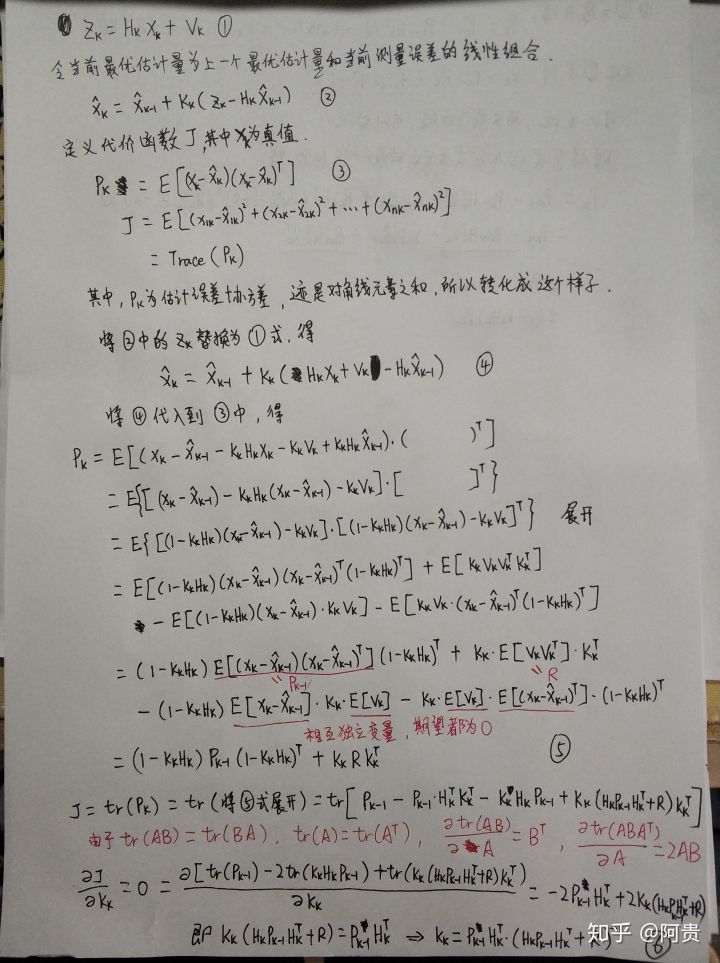 Z_K = H_K X_K + V_K ①
令当前最优估计量为上一个最优估计量和当前测量误差的线性组合.
x̂_K = x̂_{K-1} + K_K (Z_K - H_K x̂_{K-1}) ②
定义代价函数 J, 其中 X_K 为真值.
P_K = E[(X_K - x̂_K)(X_K - x̂_K)^T] ③
J = E[(X_{1K} - x̂_{1K})² + (X_{2K} - x̂_{2K})² + ... + (X_{nK} - x̂_{nK})²]
= Trace (P_K)
其中, P_K 为估计误差协方差, 迹是对角线元素之和, 所以转化成这个样子.
将②中的 Z_K 替换为①式, 得
x̂_K = x̂_{K-1} + K_K ( H_K X_K + V_K - H_K x̂_{K-1}) ④
将④代入到③中, 得
P_K = E[(X_K - x̂_{K-1} - K_K H_K X_K - K_K V_K + K_K H_K x̂_{K-1}) · ( )^T]
= E{[(X_K - x̂_{K-1}) - K_K H_K (X_K - x̂_{K-1}) - K_K V_K] · [ ]^T}
= E{[(1 - K_K H_K)(X_K - x̂_{K-1}) - K_K V_K] · [(1 - K_K H_K)(X_K - x̂_{K-1}) - K_K V_K]^T} 展开
= E[(1 - K_K H_K)(X_K - x̂_{K-1})(X_K - x̂_{K-1})^T (1 - K_K H_K)^T] + E[K_K V_K V_K^T K_K^T]
- E[(1 - K_K H_K)(X_K - x̂_{K-1}) · K_K V_K] - E[K_K V_K · (X_K - x̂_{K-1})^T (1 - K_K H_K)^T]
= (1 - K_K H_K) E[(X_K - x̂_{K-1})(X_K - x̂_{K-1})^T] (1 - K_K H_K)^T + K_K · E[V_K V_K^T] · K_K^T
" P_{K-1} " R
- (1 - K_K H_K) E[X_K - x̂_{K-1}] · K_K · E[V_K] - K_K · E[V_K] · E[(X_K - x̂_{K-1})^T] · (1 - K_K H_K)^T
相互独立变量, 期望都为0
= (1 - K_K H_K) P_{K-1} (1 - K_K H_K)^T + K_K R K_K^T ⑤
J = tr(P_K) = tr (将⑤式展开) = tr[P_{K-1} - P_{K-1} · H_K^T K_K^T - K_K H_K P_{K-1} + K_K (H_K P_{K-1} H_K^T + R) K_K^T]
由于 tr(AB) = tr(BA), tr(A) = tr(A^T), ∂tr(AB)/∂A = B^T, ∂tr(ABA^T)/∂A = 2AB
∂J/∂K_K = 0 = ∂[tr(P_{K-1}) - 2tr(K_K H_K P_{K-1}) + tr(K_K (H_K P_{K-1} H_K^T + R) K_K^T)]/∂K_K = -2P_{K-1} H_K^T + 2K_K (H_K P_{K-1} H_K^T + R)
即 K_K (H_K P_{K-1} H_K^T + R) = P_{K-1} H_K^T ⇒ K_K = P_{K-1} H_K^T · (H_K P_{K-1} H_K^T + R) ⑥
知乎 @阿贵